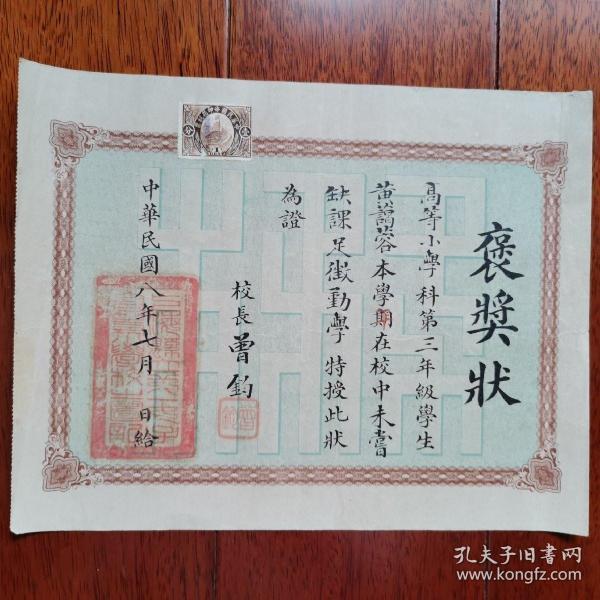 褒獎狀
高等小學科第三年級學生
黄藹蓉本學期在校中未嘗
缺課足徵勤學特授此狀
為證
校長曾鈞
中華民國八年七月 日給
孔夫子旧书网
www.kongfz.com